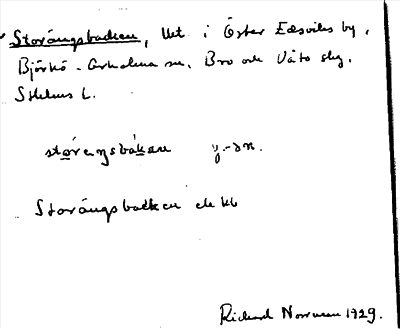 Storängsbacken, Ut i Öster Edsviks by,
Björkö-Arholma sn. Bro och Väto skg.
Sthlms L.
stórengsbákan y.-sn.
Storängsbacken ek kb
Richard Norrman 1929.